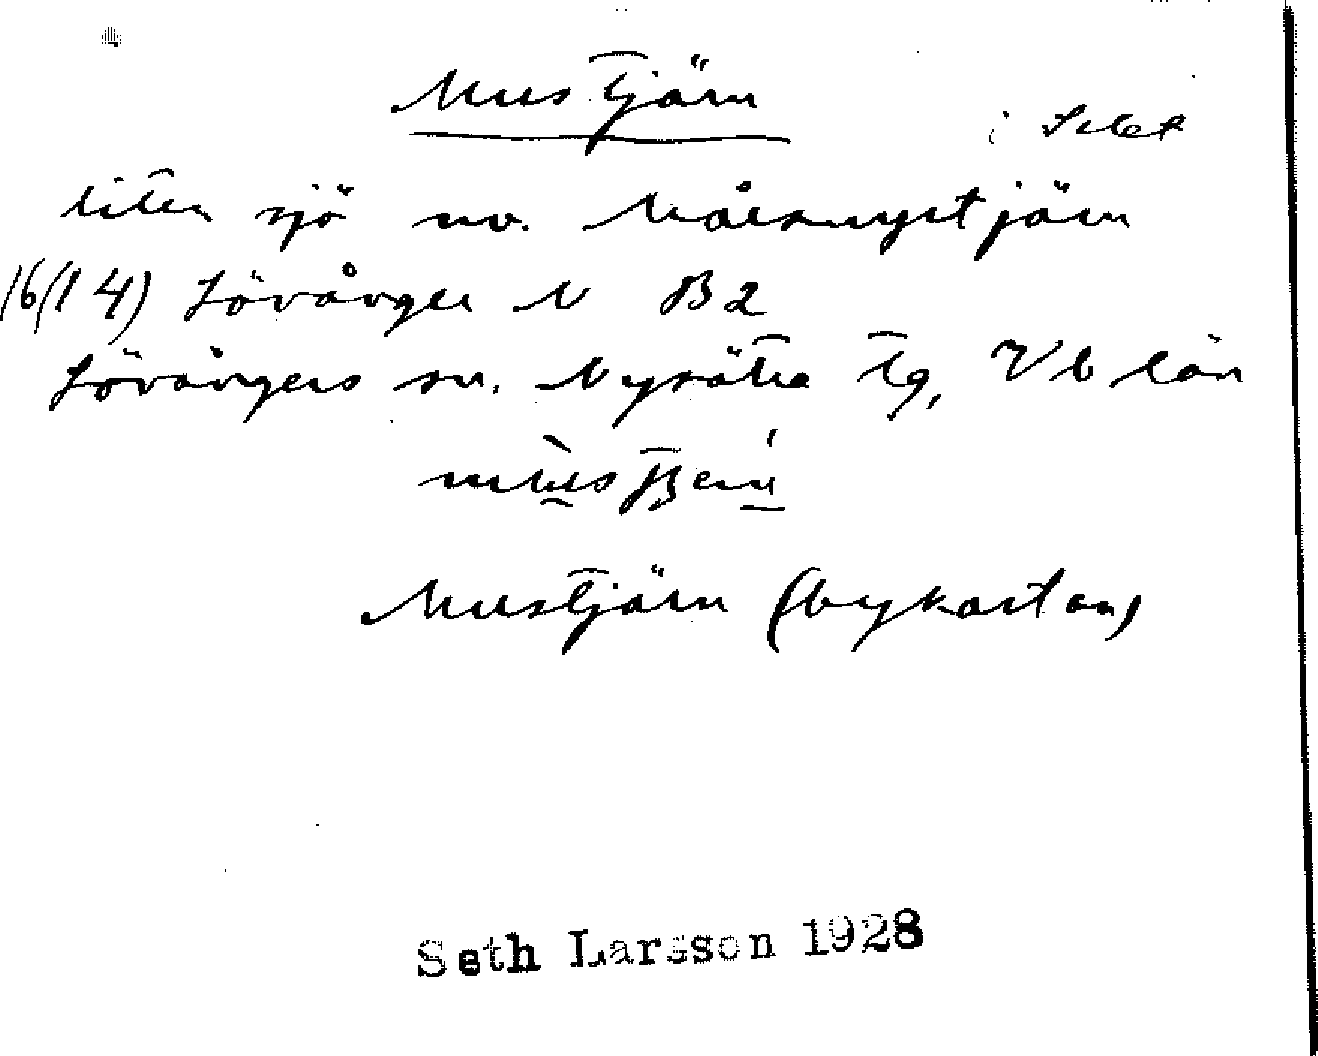 Mustjärn
i Selet
liten sjö nv. Måsmyrtjärn
16(14) Lövånger N B2
Lövångers sn. Nysätra tg, Vb län
Mustjärn (bykartan)
Seth Larsson 1928